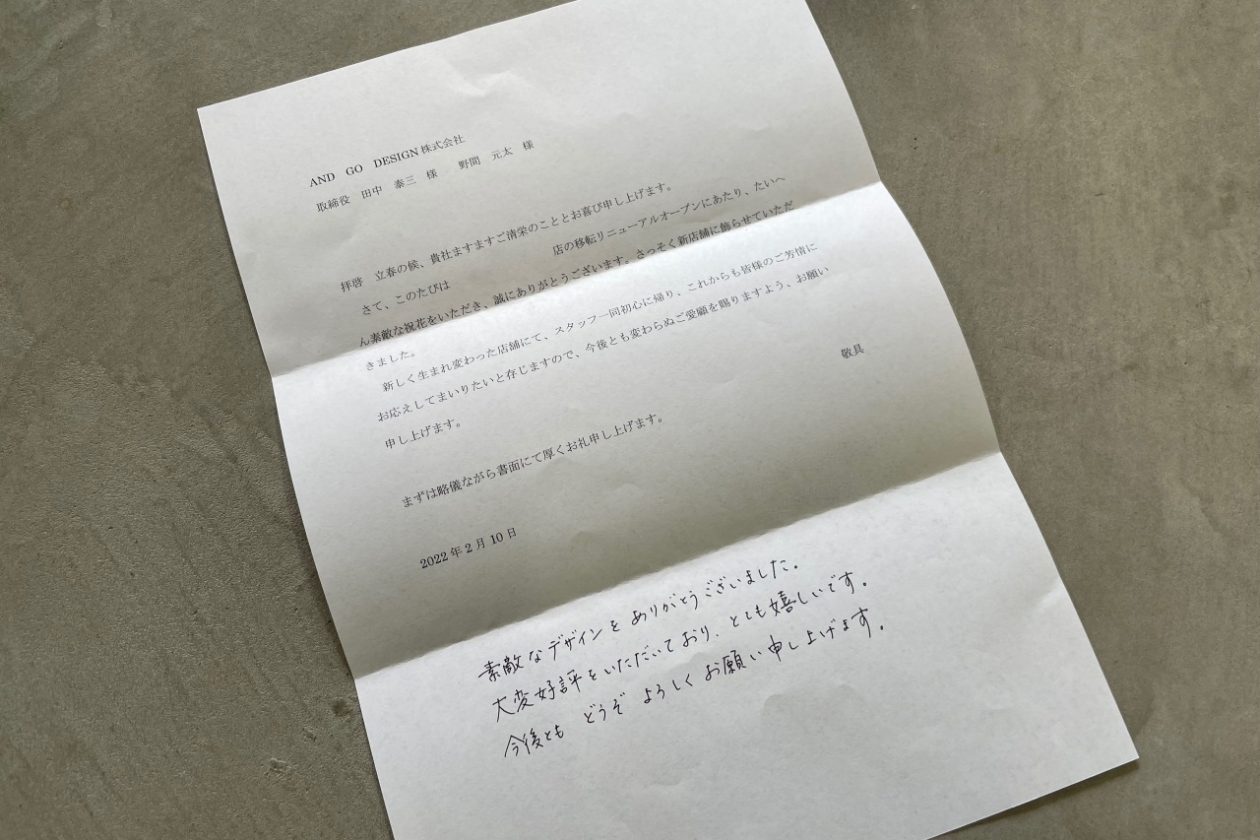 AND GO DESIGN 株式会社
取締役 田中 泰三 様 野間 元太 様
拝啓 立春の候、貴社ますますご清栄のこととお喜び申し上げます。
さて、このたびは 店の移転リニューアルオープンにあたり、たいへ
ん素敵な祝花をいただき、誠にありがとうございます。さっそく新店舗に飾らせていただ
きました。
新しく生まれ変わった店舗にて、スタッフ一同初心に帰り、これからも皆様のご芳情に
お応えしてまいりたいと存じますので、今後とも変わらぬご愛顧を賜りますよう、お願い
申し上げます。
敬具
まずは略儀ながら書面にて厚くお礼申し上げます。
2022 年 2 月 10 日
素敵なデザインを ありがとうございました。
大変好評をいただいており、とても嬉しいです。
今後とも どうぞ よろしく お願い申し上げます。